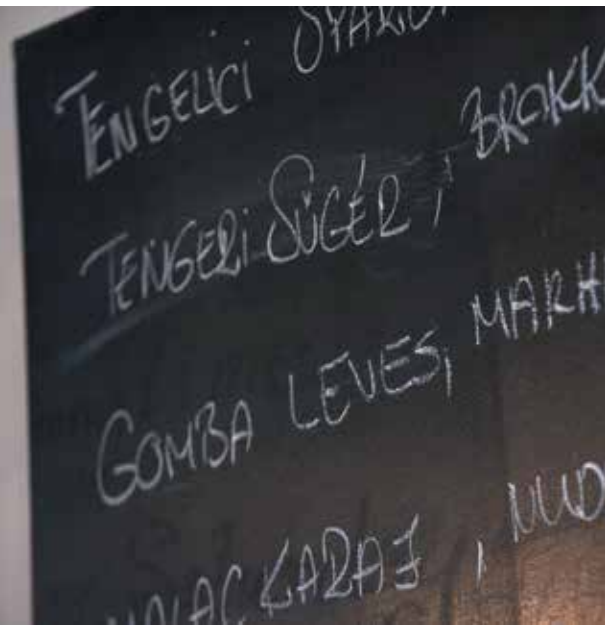 TENGELICI
TENGERI SÜGÉR, BROKK
GOMBA LEVES, MARH
MALAC KARAJ, NUD